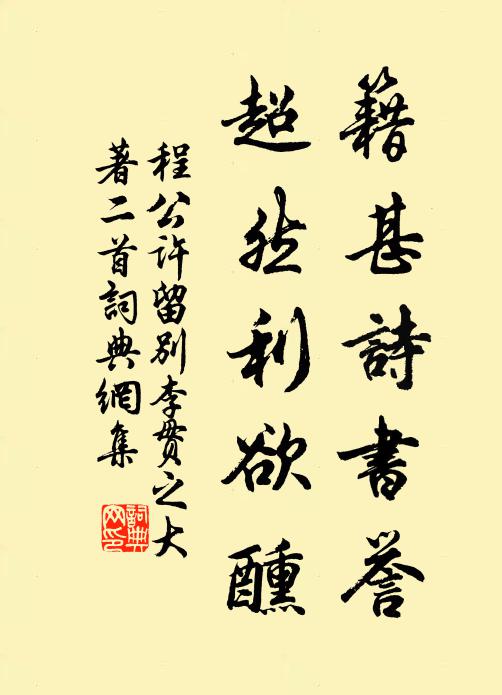 籍甚詩書譽
超然利欲醺
程公許留別李貫之大
著二首詞典網集
詞典
网印